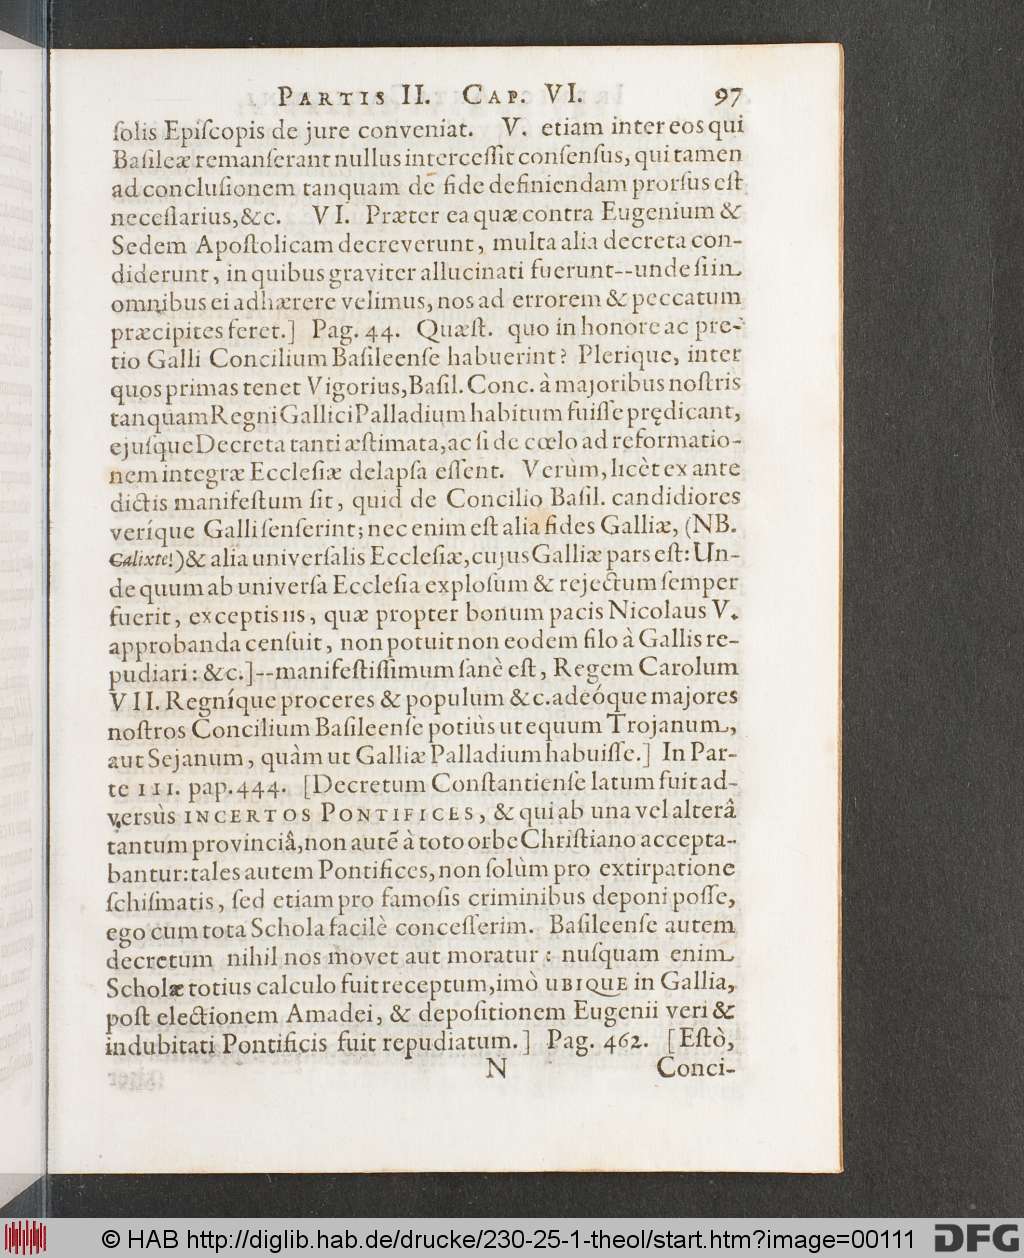 PARTIS II. CAP. VI. 97
ſolis Epiſcopis de jure conveniat. V. etiam inter eos qui
Baſileæ remanſerant nullus interceſſit conſenſus, qui tamen
ad concluſionem tanquam de fide definiendam prorſus eſt
neceſſarius, &c. VI. Præter ea quæ contra Eugenium &
Sedem Apoſtolicam decreverunt, multa alia decreta con-
diderunt, in quibus graviter allucinati fuerunt--unde ſi in
omnibus ei adhærere velimus, nos ad errorem & peccatum
præcipites feret.] Pag. 44. Quæſt. quo in honore ac pre-
tio Galli Concilium Baſileenſe habuerint? Plerique, inter
quos primas tenet Vigorius, Baſil. Conc. à majoribus noſtris
tanquam Regni Gallici Palladium habitum fuiſſe prędicant,
ejuſque Decreta tanti æſtimata, ac ſi de cœlo ad reformatio-
nem integræ Eccleſiæ delapſa eſſent. Verùm, licèt ex ante
dictis manifeſtum ſit, quid de Concilio Baſil. candidiores
veríque Galli ſenſerint; nec enim eſt alia fides Galliæ, (NB.
Calixte!) & alia univerſalis Eccleſiæ, cujus Galliæ pars eſt: Un-
de quum ab univerſa Eccleſia exploſum & rejectum ſemper
fuerit, exceptis iis, quæ propter bonum pacis Nicolaus V.
approbanda cenſuit, non potuit non eodem filo à Gallis re-
pudiari: &c.]--manifeſtiſſimum ſanè eſt, Regem Carolum
VII. Regníque proceres & populum &c. adeóque majores
noſtros Concilium Baſileenſe potiùs ut equum Trojanum,
aut Sejanum, quàm ut Galliæ Palladium habuiſſe.] In Par-
te III. pap. 444. [Decretum Conſtantienſe latum fuit ad-
versùs INCERTOS PONTIFICES, & qui ab una vel alterâ
tantum provinciâ, non autẽ à toto orbe Chriſtiano accepta-
bantur: tales autem Pontifices, non ſolùm pro extirpatione
ſchiſmatis, ſed etiam pro famoſis criminibus deponi poſſe,
ego cum tota Schola facilè conceſſerim. Baſileenſe autem
decretum nihil nos movet aut moratur: nuſquam enim
Scholæ totius calculo fuit receptum, imò UBIQUE in Gallia,
poſt electionem Amadei, & depoſitionem Eugenii veri &
indubitati Pontificis fuit repudiatum.] Pag. 462. [Eſtò,
N Conci-
© HAB http://diglib.hab.de/drucke/230-25-1-theol/start.htm?image=00111 DFG